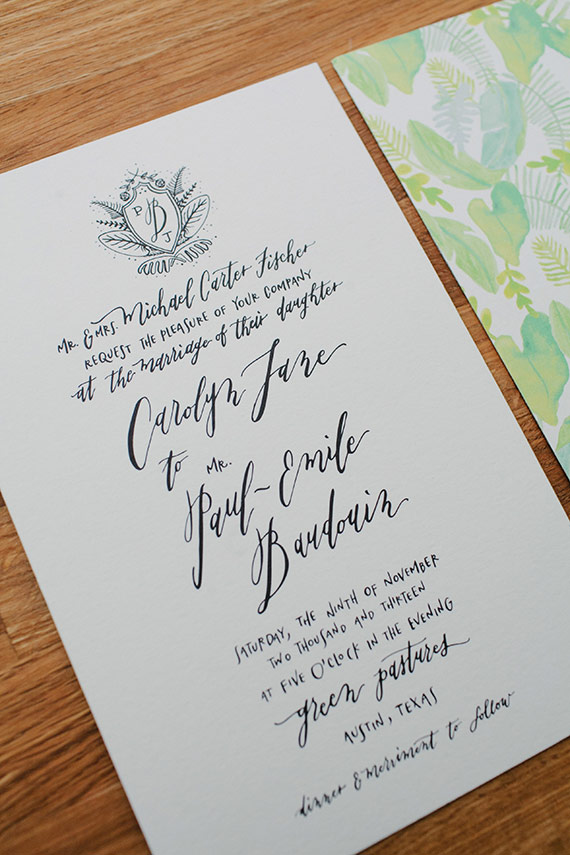 P B J
Mr. & Mrs. Michael Carter Fischer
REQUEST THE PLEASURE OF YOUR COMPANY
at the marriage of their daughter
Carolyn Jane
to Mr.
Paul-Emile
Baudouin
SATURDAY, THE NINTH OF NOVEMBER
TWO THOUSAND AND THIRTEEN
AT FIVE O'CLOCK IN THE EVENING
green pastures
AUSTIN, TEXAS
dinner & merriment to follow